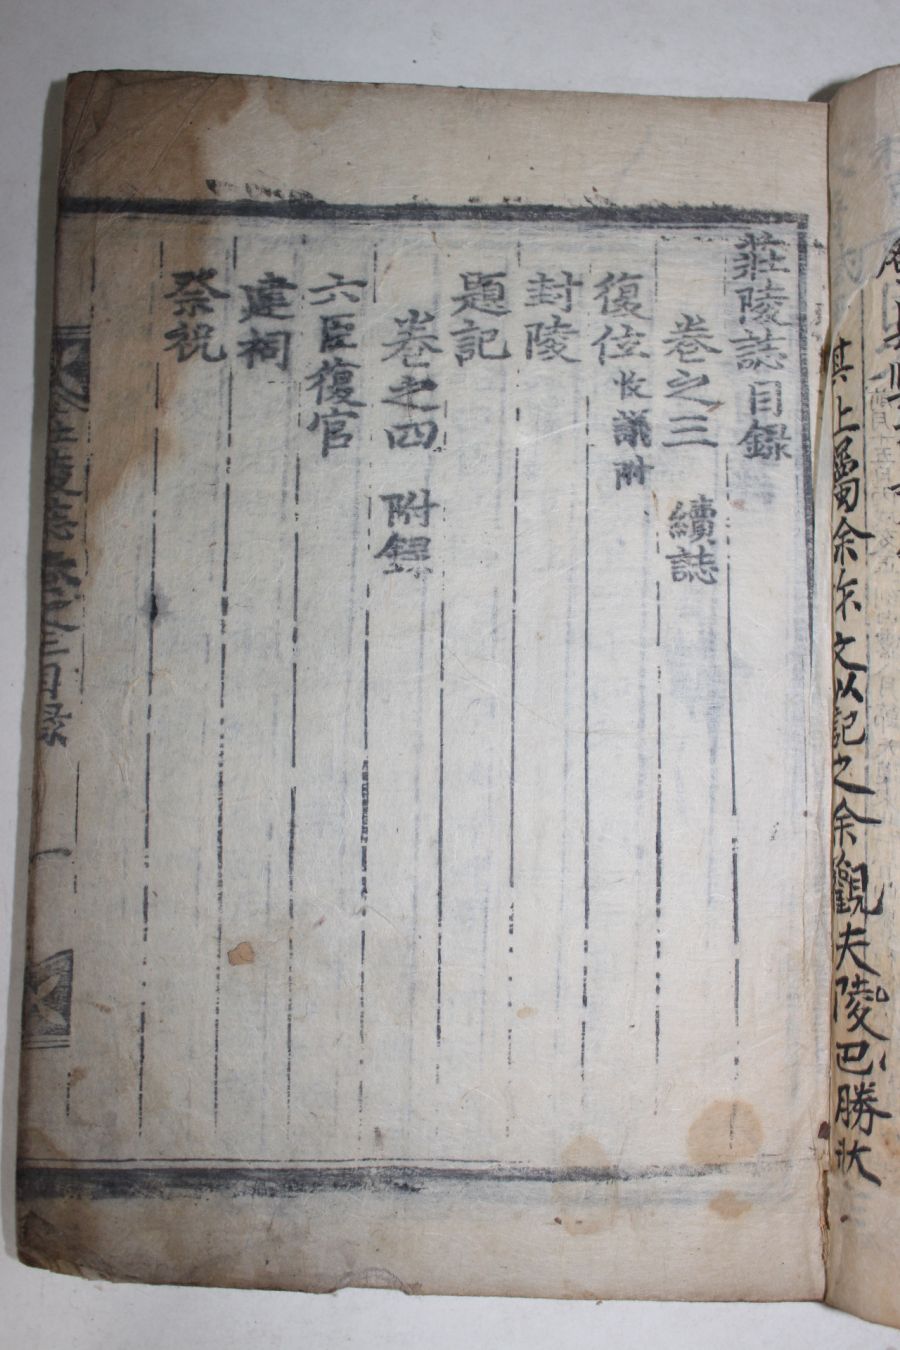 其上屬余作文以記之余觀夫陵巴勝狀
莊陵誌目錄
卷之三 續誌
復位 收議附
封陵
題記
卷之四 附錄
六臣復官
建祠
祭祝
莊陵誌 卷之三目錄 一